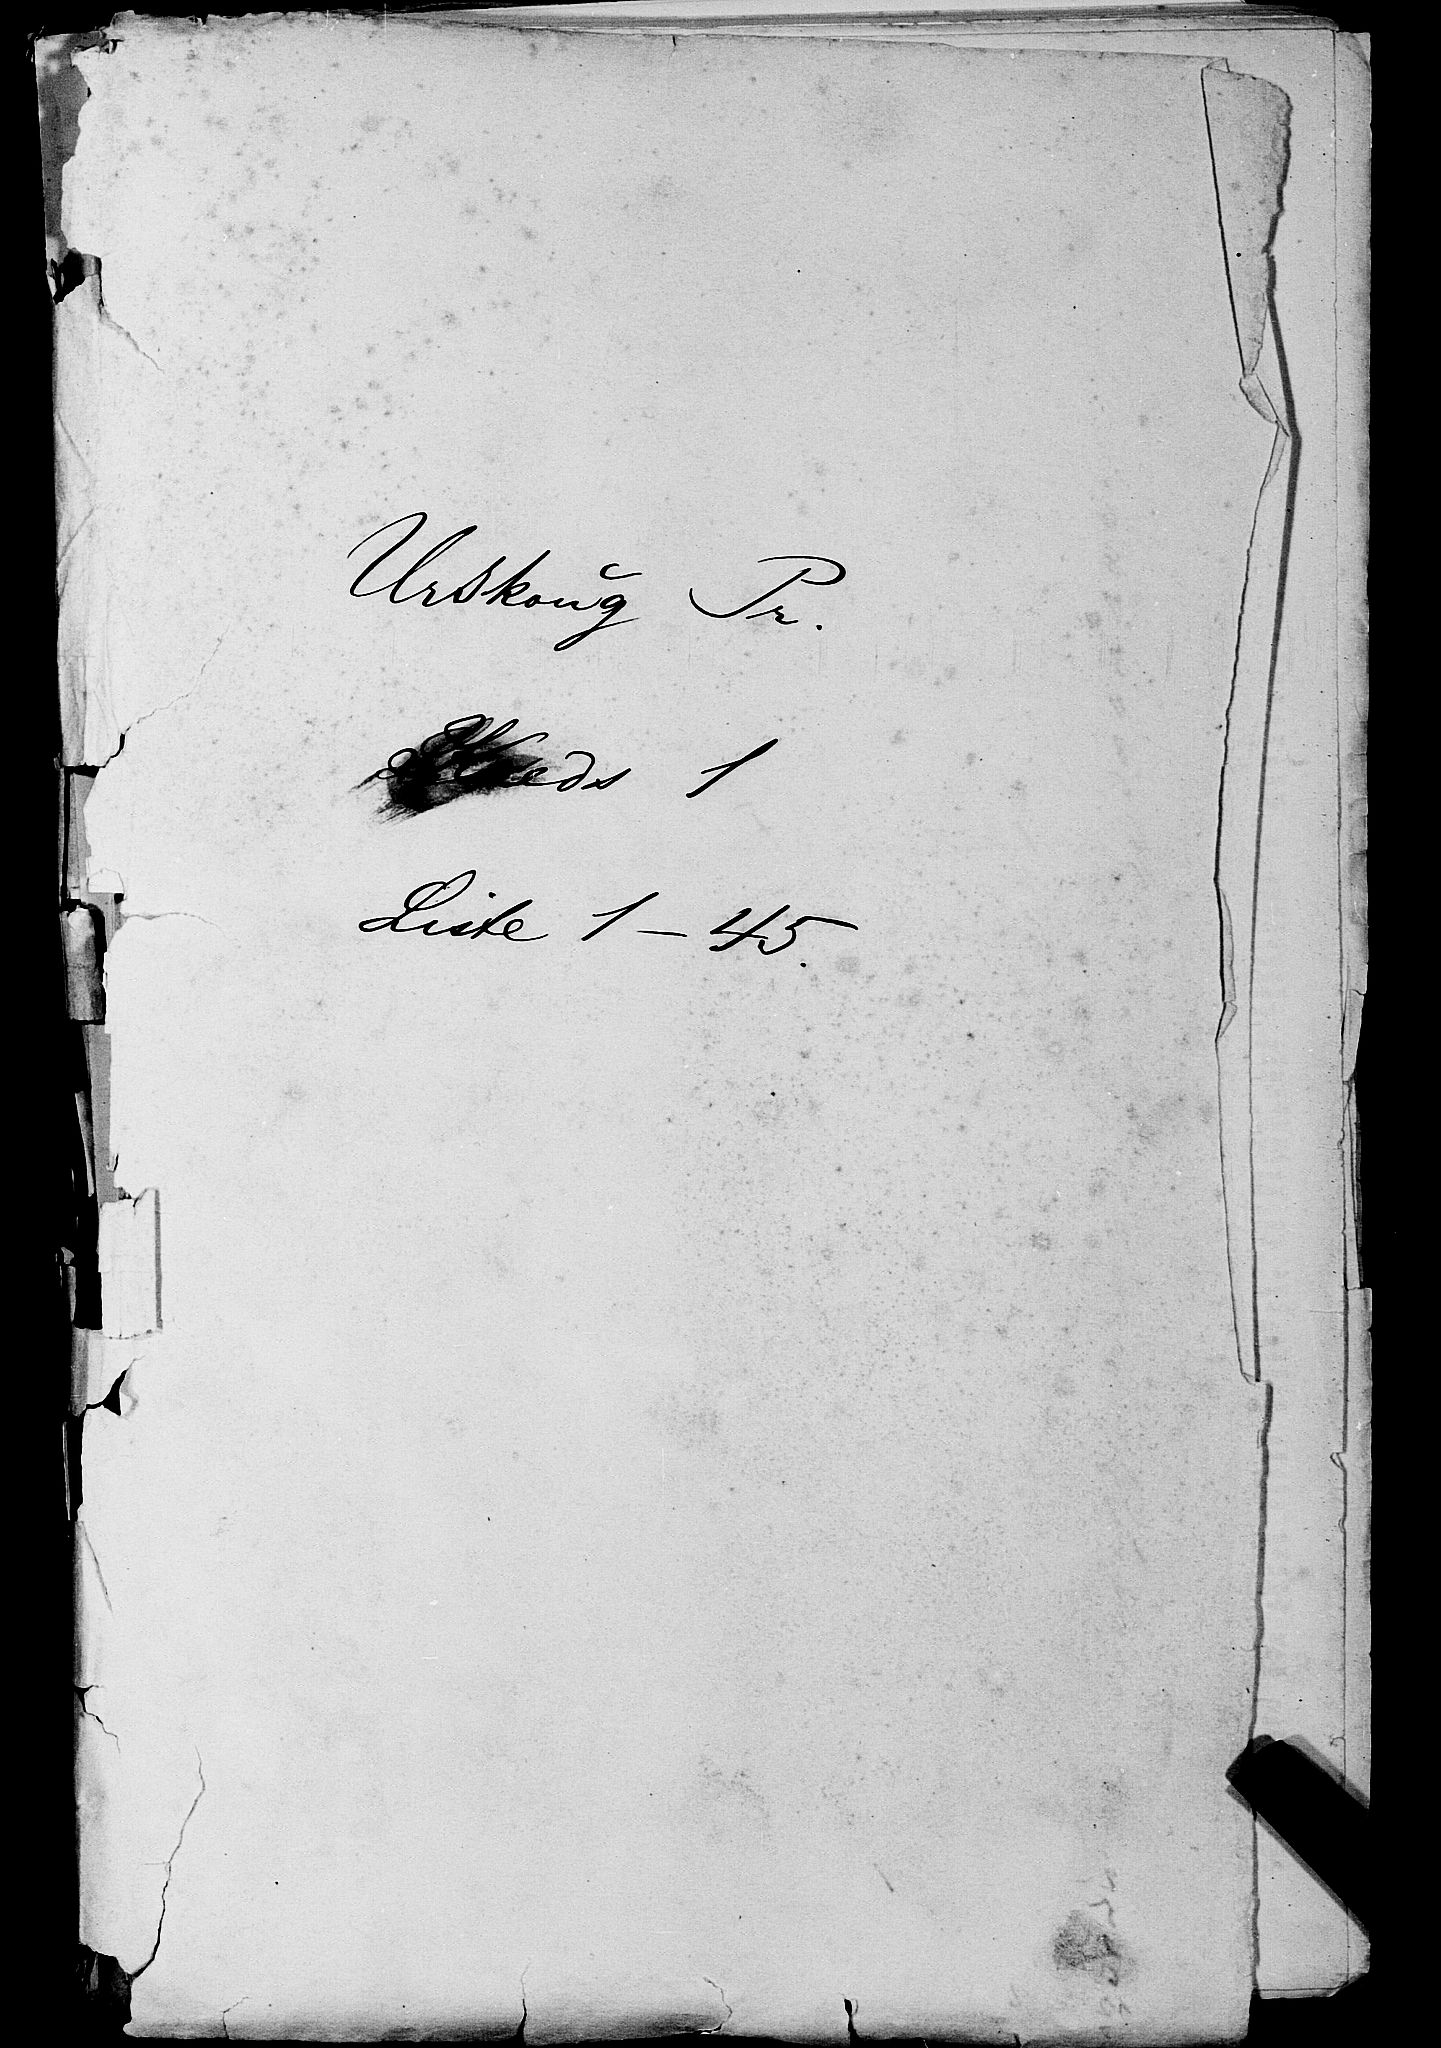 Urskoug Pr.
Kreds 1
Liste 1 – 45.